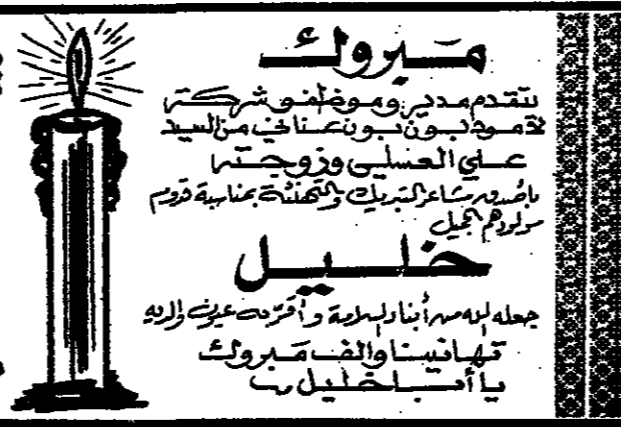 مبروك
يتقدم مدير وموظفو شركة
لامود بون بون عنابي من السيد
علي العسلي وزوجته
بأصدق مشاعر التبريك والتهنئة بمناسبة قدوم
مولودهم الجميل
خليل
جعله الله من أبناء السلامة وأقر به عيون والديه
تهانينا والف مبروك
يا أبا خليل